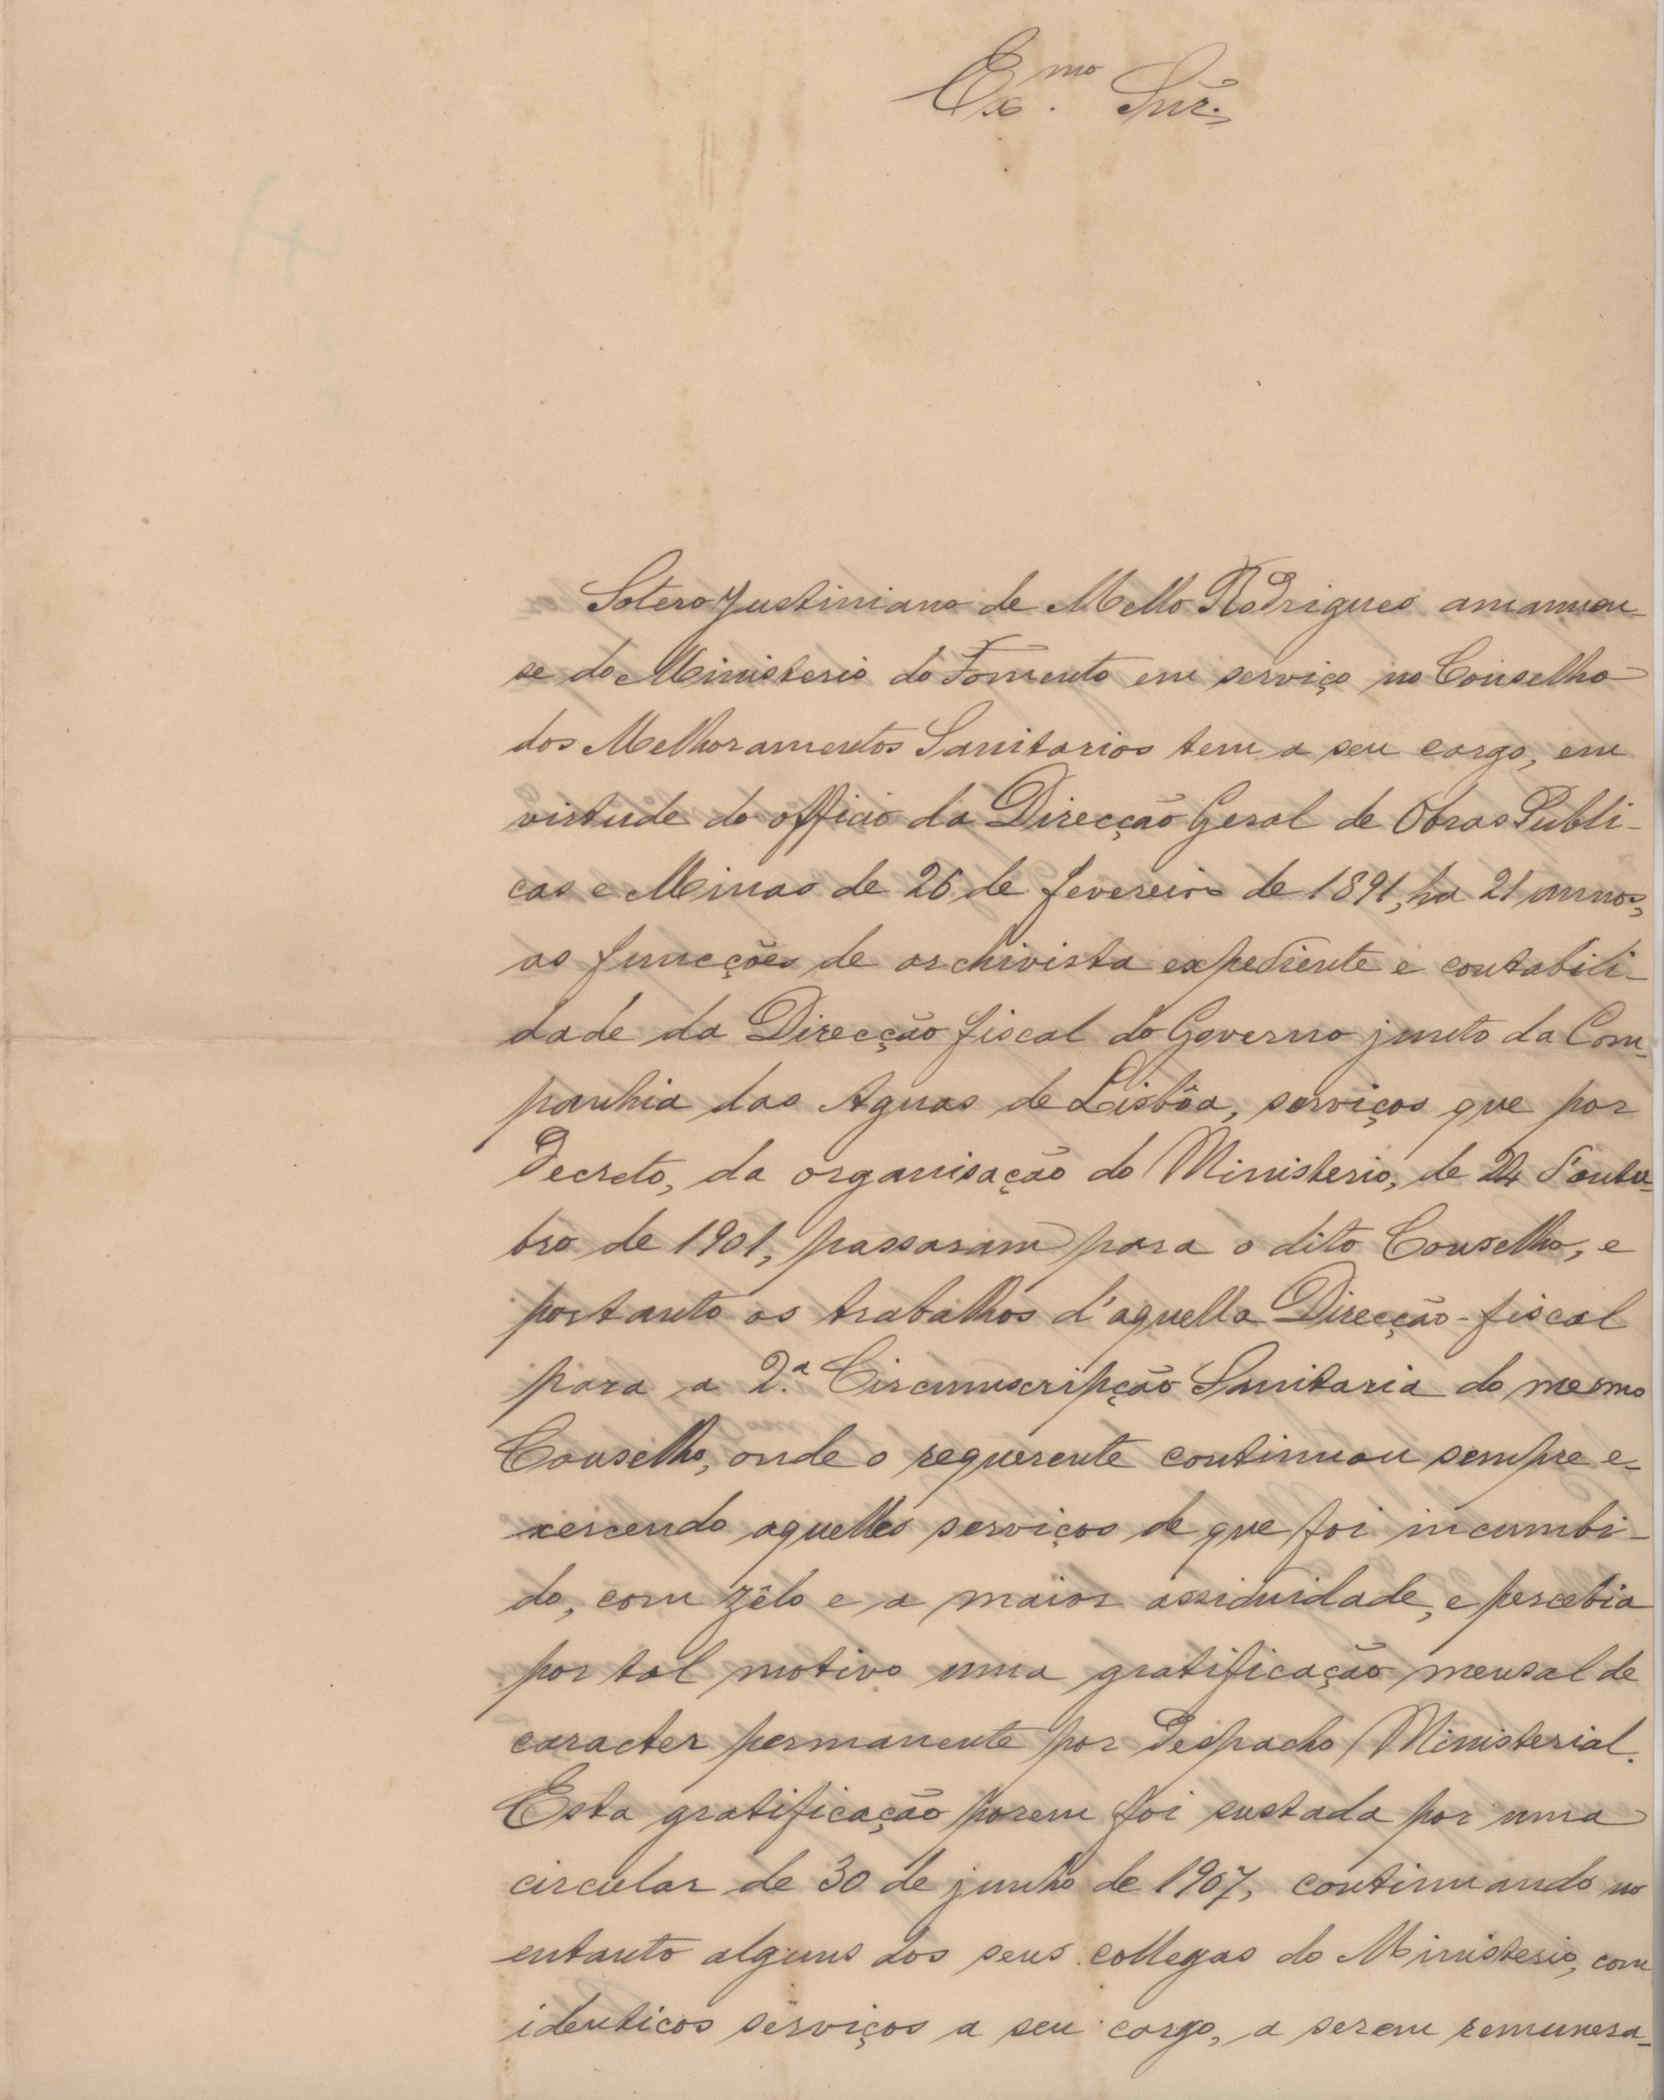 Ex.mo Snr.
Sotero Justiniano de Mello Rodrigues amanuen-
se do Ministerio do Fomento em serviço no Conselho
dos Melhoramentos Sanitarios tem a seu cargo, em
virtude do officio da Direcção Geral de Obras Publi-
cas e Minas de 26 de fevereiro de 1891, ha 21 annos,
as funcções de archivista expediente e contabili-
dade da Direcção fiscal do Governo junto da Com-
panhia das Aguas de Lisbôa, serviços que por
Decreto, da organisação do Ministerio, de 24 d'outu-
bro de 1901, passaram para o dito Conselho, e
portanto os trabalhos d'aquella Direcção-fiscal
para a 2.ª Circumscripção Sanitaria do mesmo
Conselho, onde o requerente continuou sempre e-
xercendo aquelles serviços de que foi incumbi-
do, com zêlo e a maior assiduidade, e percebia
por tal motivo uma gratificação mensal de
caracter permanente por Despacho Ministerial.
Esta gratificação porem foi sustada por uma
circular de 30 de junho de 1907, continuando no
entanto alguns dos seus collegas do Ministerio, com
identicos serviços a seu cargo, a serem remunera-